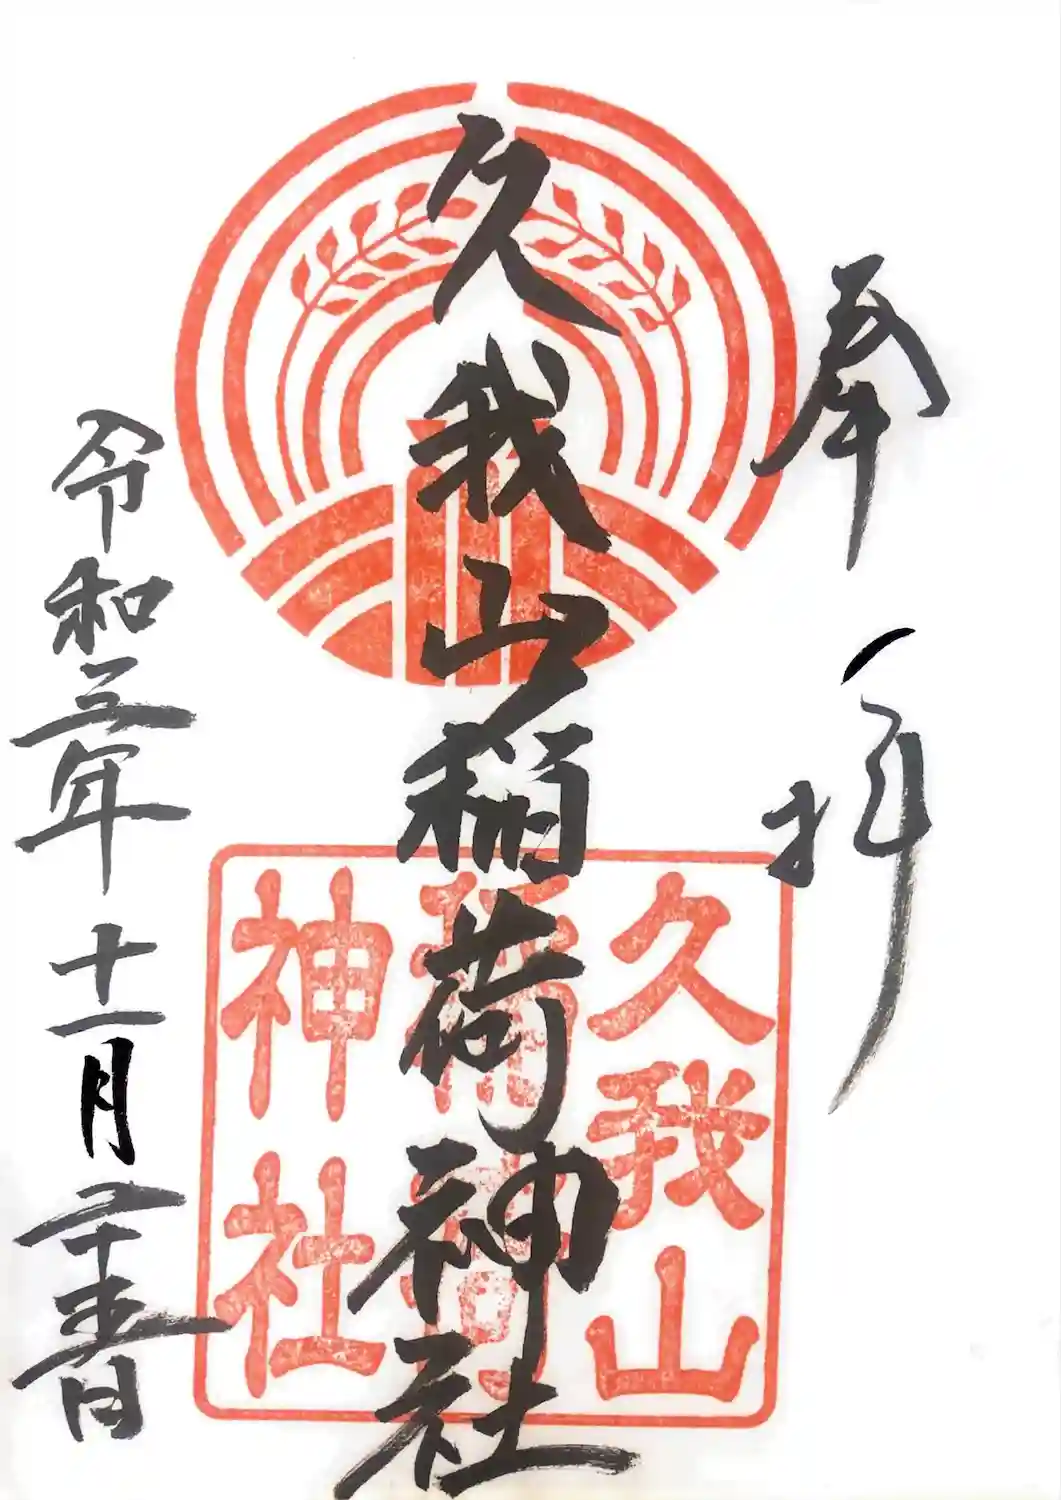 奉拝
久我山稲荷神社
久我山
稲荷
神社
令和三年十一月二十五日